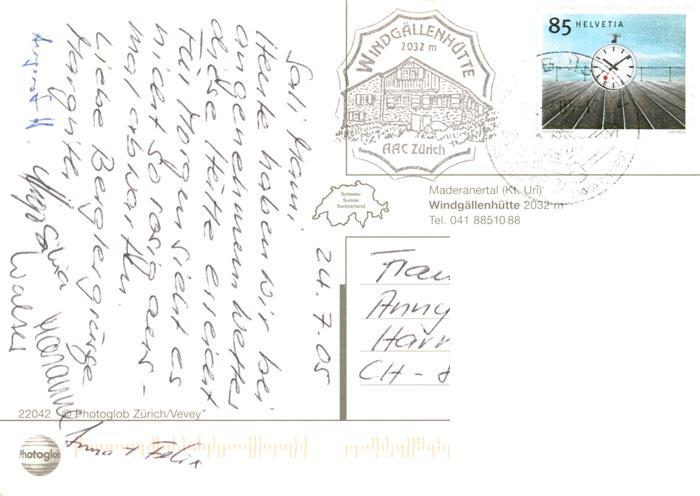 85 HELVETIA
WINDGÄLLENHÜTTE
2032 m
AAC Zürich
Schweiz
Suisse
Switzerland
Maderanertal (Kt. Uri)
Windgällenhütte 2032 m
Tel. 041 885 10 88
24.7.05
Sali Mami
Heute haben wir bei
angenehmem Wetter
diese Hütte erreicht
Für Morgen sieht es
nicht so rosig aus -
mal abwarten.
Liebe Berglergrüsse
Margrith
August H.
Silvia
Walter
Marianne
Anna + Felix
Frau
Anny
CH -
22042 © Photoglob Zürich/Vevey
Photoglob